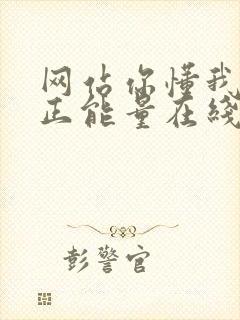 网站你懂我
正能量在线
彭警官